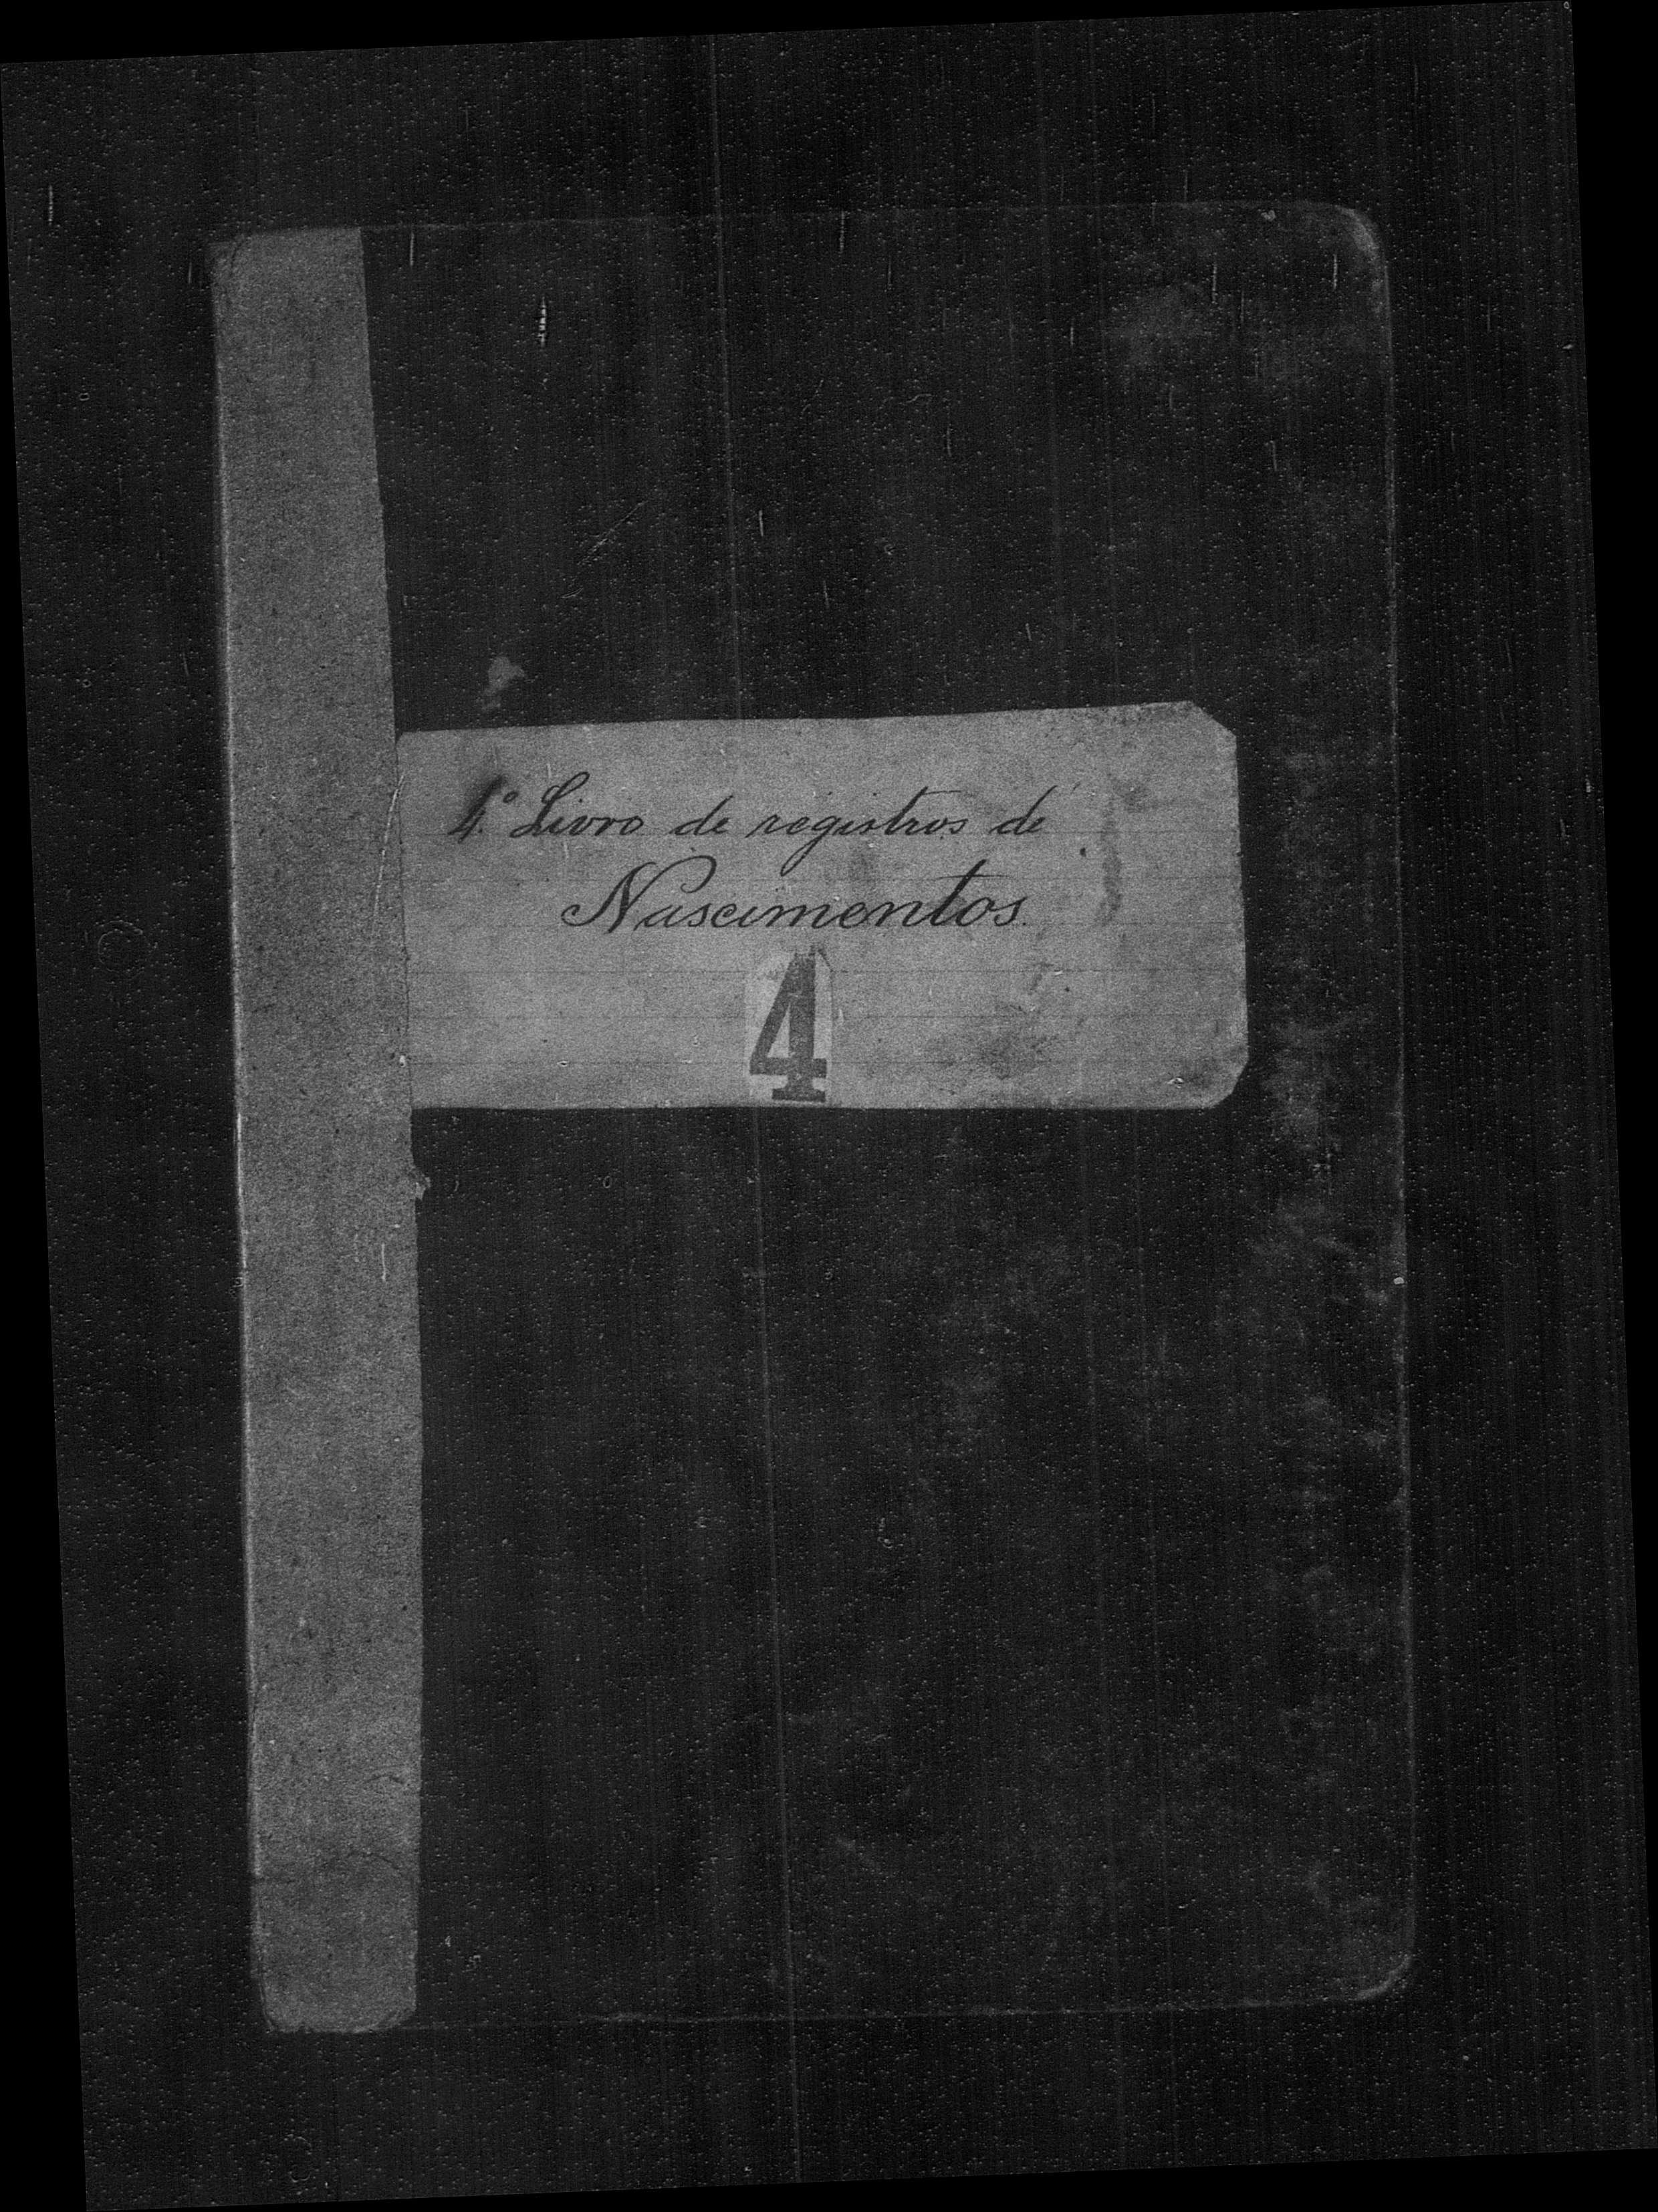 4º Livro de registros de
Nascimentos.
4